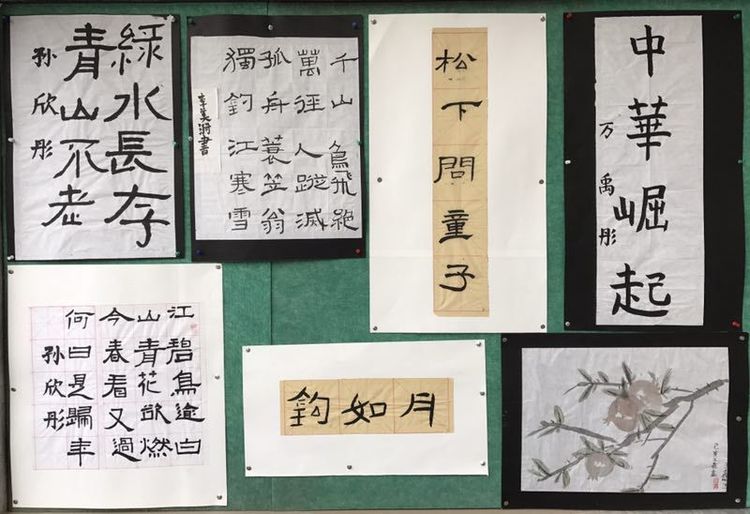 綠水長存
青山不老
孙欣彤
千山鳥飛絕
萬徑人蹤滅
孤舟蓑笠翁
獨釣江寒雪
松下問童子
中華崛起
万禹彤
江碧鳥逾白
山青花欲燃
今春看又過
何日是歸年
孙欣彤
月如鈎